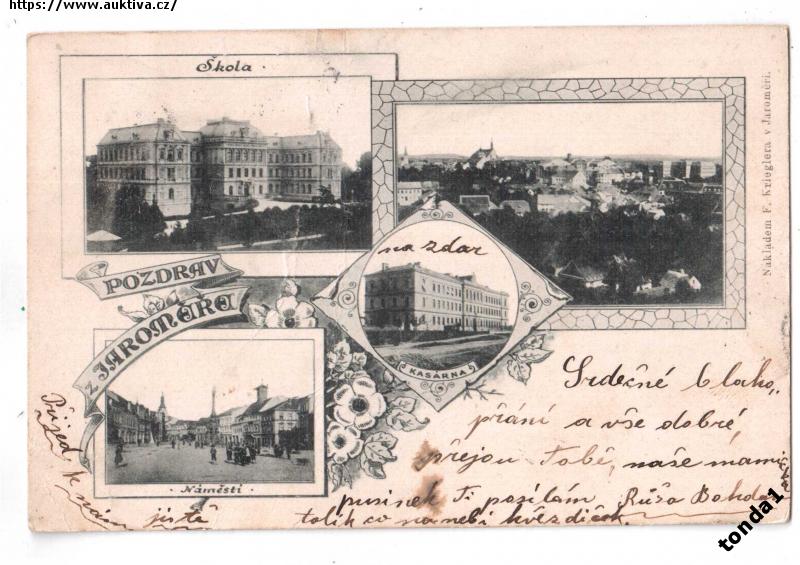 https://www.auktiva.cz/
Škola.
POZDRAV
z JAROMĚŘE
na zdar
KASÁRNA
Náměstí
Nakladem F. Krieglera v Jaroměři.
Srdečné blaho,
přání a vše dobré,
přejou Tobě, naše mamička
pusinek Ti posílám Růža Bohda
tolik co na nebi hvězdiček.
Přijed k
nám jistě
tonda1